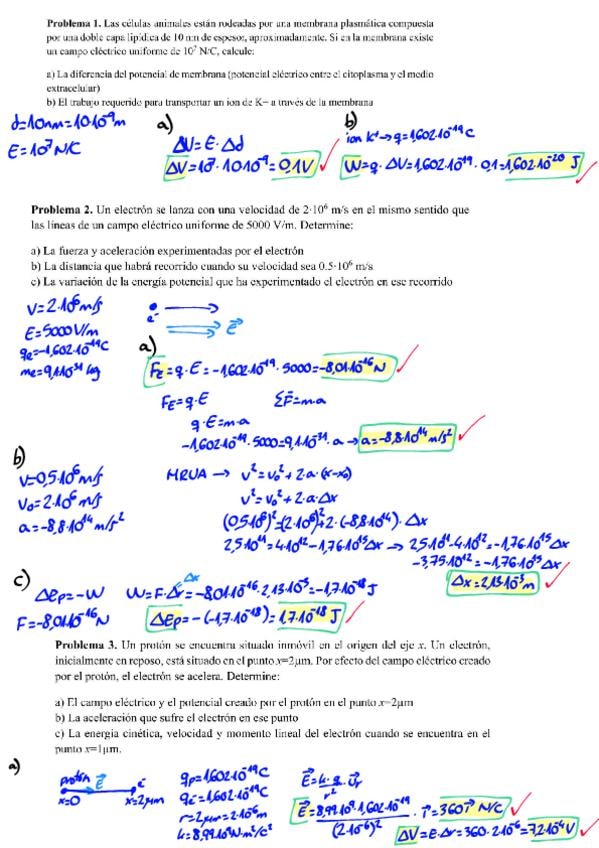 Problema 1. Las células animales están rodeadas por una membrana plasmática compuesta
por una doble capa lipídica de 10 nm de espesor, aproximadamente. Si en la membrana existe
un campo eléctrico uniforme de 10⁷ N/C, calcule:
a) La diferencia del potencial de membrana (potencial eléctrico entre el citoplasma y el medio
extracelular)
b) El trabajo requerido para transportar un ion de K+ a través de la membrana
d=10nm=10·10⁻⁹m
E=10⁷ N/C
a)
ΔU=E·Δd
ΔV=10⁷·10·10⁻⁹=0,1V
b)
ion K⁺→q=1,602·10⁻¹⁹C
W=q·ΔV=1,602·10⁻¹⁹·0,1=1,602·10⁻²⁰ J
Problema 2. Un electrón se lanza con una velocidad de 2·10⁶ m/s en el mismo sentido que
las líneas de un campo eléctrico uniforme de 5000 V/m. Determine:
a) La fuerza y aceleración experimentadas por el electrón
b) La distancia que habrá recorrido cuando su velocidad sea 0.5·10⁶ m/s
c) La variación de la energía potencial que ha experimentado el electrón en ese recorrido
V=2·10⁶m/s
E=5000V/m
qe=-1,602·10⁻¹⁹C
me=9,1·10⁻³¹ kg
e⁻
E⃗
a)
FE=q·E=-1,602·10⁻¹⁹·5000=-8,01·10⁻¹⁶N
FE=q·E ΣF⃗=m·a
q·E=m·a
-1,602·10⁻¹⁹·5000=9,1·10⁻³¹·a→a=-8,8·10¹⁴m/s²
b)
V=0,5·10⁶m/s
V₀=2·10⁶ m/s
a=-8,8·10¹⁴m/s²
MRUA → v²=v₀²+2·a·(x-x₀)
v²=v₀²+2·a·Δx
(0,5·10⁶)²=(2·10⁶)²+2·(-8,8·10¹⁴)·Δx
2,5·10¹¹=4·10¹²-1,76·10¹⁵Δx→2,5·10¹¹-4·10¹²=-1,76·10¹⁵Δx
-3,75·10¹²=-1,76·10¹⁵Δx
Δx=2,13·10⁻³m
c)
ΔEp=-W
F=-8,01·10⁻¹⁶N
Δx
W=F·Δr=-8,01·10⁻¹⁶·2,13·10⁻³=-1,7·10⁻¹⁸J
ΔEp=-(-1,7·10⁻¹⁸)=1,7·10⁻¹⁸J
Problema 3. Un protón se encuentra situado inmóvil en el origen del eje x. Un electrón,
inicialmente en reposo, está situado en el punto x=2μm. Por efecto del campo eléctrico creado
por el protón, el electrón se acelera. Determine:
a) El campo eléctrico y el potencial creado por el protón en el punto x=2μm
b) La aceleración que sufre el electrón en ese punto
c) La energía cinética, velocidad y momento lineal del electrón cuando se encuentra en el
punto x=1μm.
a)
protón E⃗ e⁻
x=0 x=2μm
qp=1,602·10⁻¹⁹C
qe=1,602·10⁻¹⁹C
r=2μm=2·10⁻⁶m
k=8,99·10⁹N·m²/C²
E⃗=k·q/r²·u⃗r
E⃗=8,99·10⁹·1,602·10⁻¹⁹/(2·10⁻⁶)²·i⃗=360i⃗ N/C
ΔV=E·Δr=360·2·10⁻⁶=7,2·10⁻⁴V